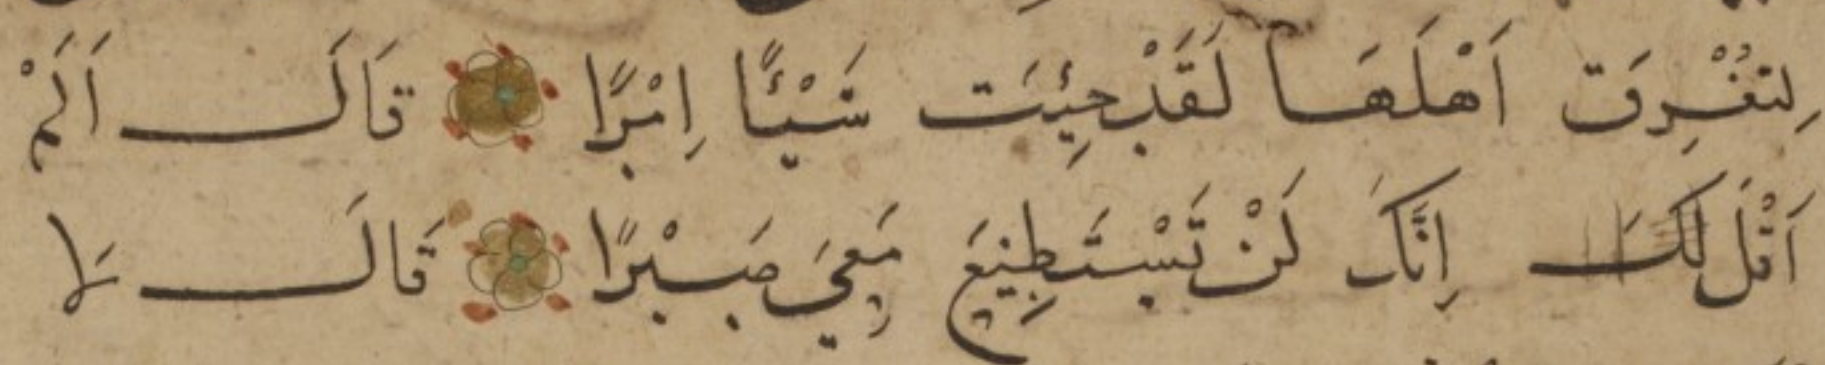 لِتُغْرِقَ اَهْلَهَا لَقَدْ جِئْتَ شَيْـًٔا اِمْرًا قَالَ اَلَمْ
اَقُلْ لَكَ اِنَّكَ لَنْ تَسْتَطِيعَ مَعِيَ صَبْرًا قَالَ لَا